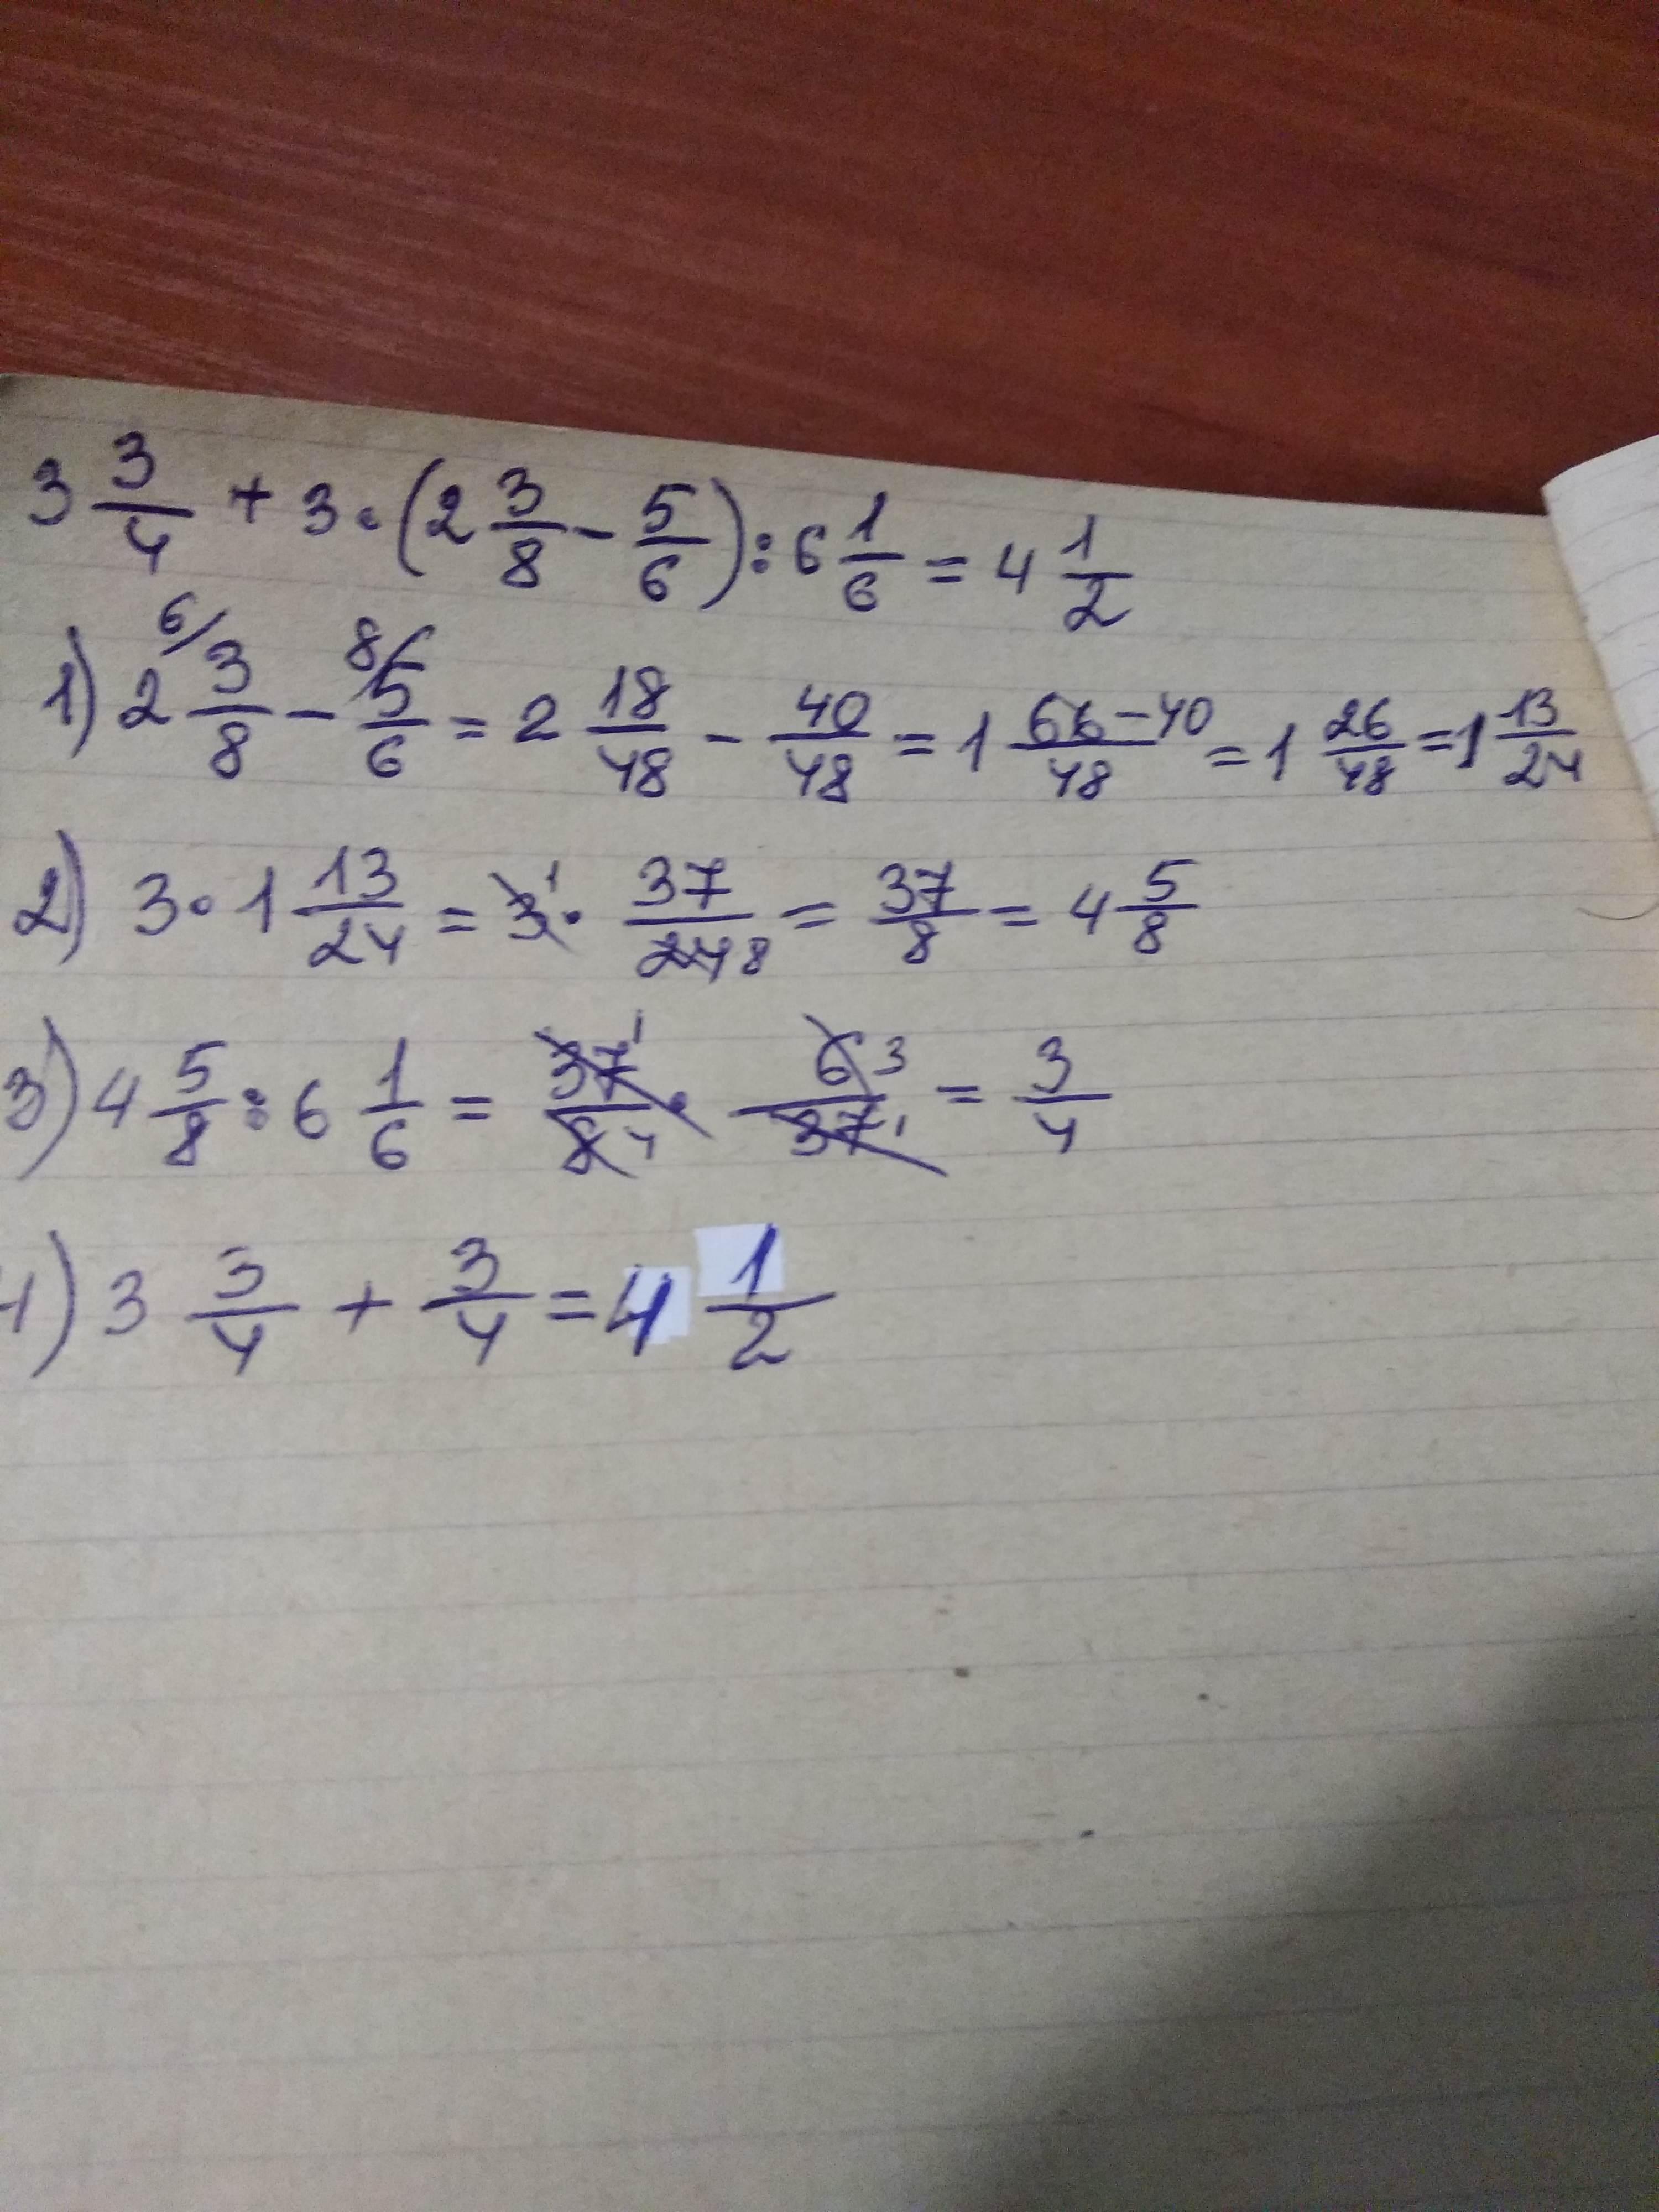 3 3/4 + 3 · (2 3/8 − 5/6) : 6 1/6 = 4 1/2
1) 2 6/ 3/8 − 8/ 5/6 = 2 18/48 − 40/48 = 1 66−40/48 = 1 26/48 = 1 13/24
2) 3 · 1 13/24 = 3 1 · 37/24 8 = 37/8 = 4 5/8
3) 4 5/8 : 6 1/6 = 37 1/8 4 · 6 3/37 1 = 3/4
4) 3 3/4 + 3/4 = 4 1/2